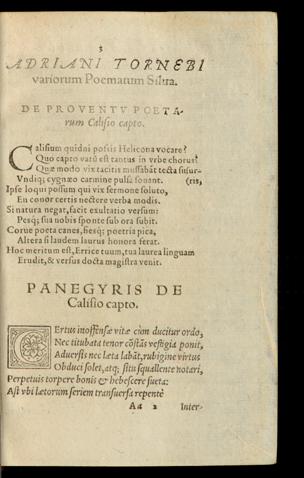 3
ADRIANI TORNEBI
variorum Poematum Silua.
DE PROVENTV POETA-
rum Calisio capto.
CAlisium quidni possis Helicona vocare?
Quo capto vatū est tantus in vrbe chorus?
Quæ modo vix tacitis mussabāt tecta susur-
Vndiq; cygnæo carmine pulsa sonant. (ris,
Ipse loqui possum qui vix sermone soluto,
En conor certis nectere verba modis.
Si natura negat, facit exultatio versum:
Pesq; sua nobis sponte sub ora subit.
Corue poeta canes, siesq; poetria pica,
Altera si laudem laurus honora ferat.
Hoc meritum est, Errice tuum, tua laurea linguam
Erudit, & versus docta magistra venit.
PANEGYRIS DE
Calisio capto.
CErtus inoffensæ vitæ cùm ducitur ordo,
Nec titubata tenor cōstās vestigia ponit,
Aduersis nec læta labāt, rubigine virtus
Obduci solet, atq; situ squallente notari,
Perpetuis torpere bonis & hebescere sueta:
Ast vbi lætorum seriem transuersa repentè
Aa 2 Inter-